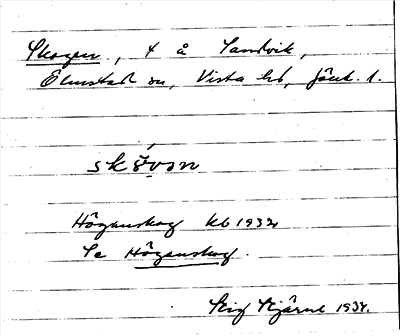 Skogen, t å Sandvik,
Ölmstad sn, Vista hd, Jönk. l.
skóvən
Höganskog kb 1932
Se Höganskog.
Stig Stjärne 1934.